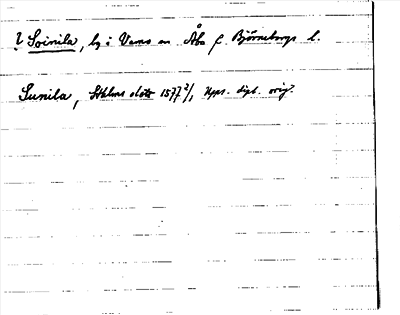 ? Soinila, by i Vamo sn Åbo o. Björneborgs l.
Sunila, Sthlms slott 1577 2/1, Upps. dipl. orig.